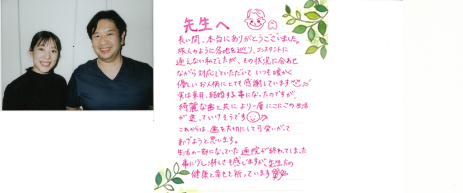 先生へ
長い間、本当にありがとうございました。
旅人のように各地を巡り、コンスタントに
通えない私でしたが、その状況に合わせ
ながら対応していただいて いつも暖かく
優しいお人柄にとても感謝しています
実は来月、結婚する事になったのですが、
綺麗な歯と共に より一層 にこにこの生活
が送っていけそうです
これからは、歯を大切にして可愛いがって
あげようと思います。
生活の一部になっていた通院が終わってしまった
事に少し淋しさも感じますが、先生方の
健康と幸せを祈っています